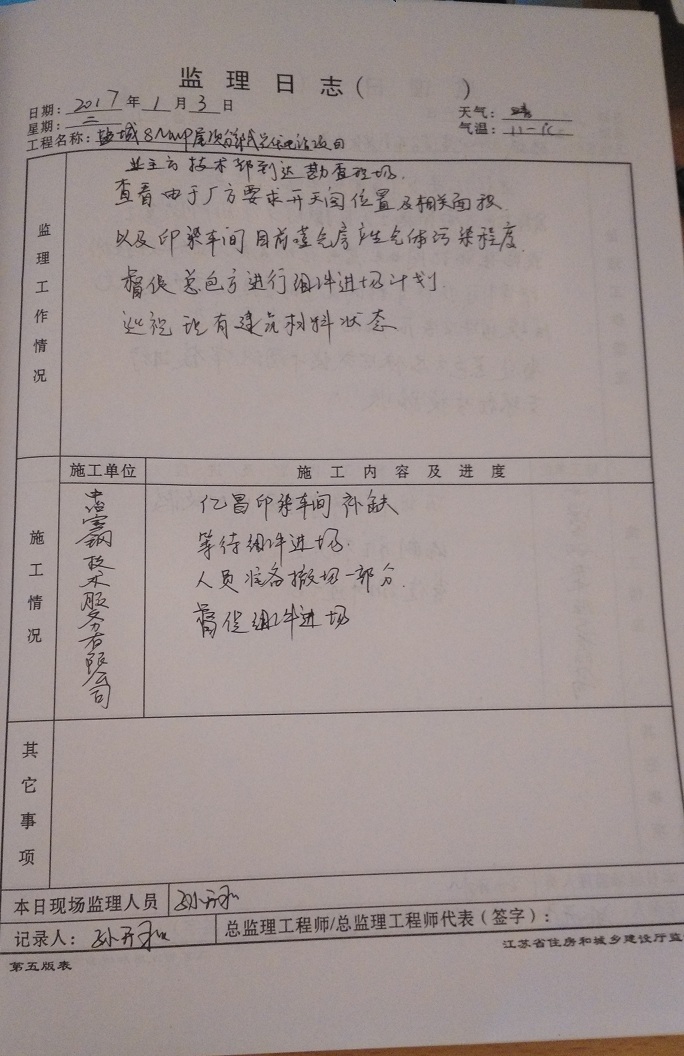 监理日志（ ）
日期：2017年1月3日
天气：晴
星期：二
气温：
工程名称：盐城8MWP屋顶分布式光伏电站项目
监理工作情况
业主方技术部到达勘查现场.
查看由于厂方要求开天窗位置及相关面积
以及印染车间目前蒸气房产生气体污染程度.
督促总包方进行组件进场计划.
巡视现有建筑材料状态
施工情况
施工单位
施工内容及进度
中冶宝钢技术服务有限公司
亿昌印染车间补缺
等待组件进场.
人员准备撤场一部分.
督促组件进场
其它事项
本日现场监理人员 孙开和
记录人：孙开和
总监理工程师/总监理工程师代表（签字）：
第五版表
江苏省住房和城乡建设厅监